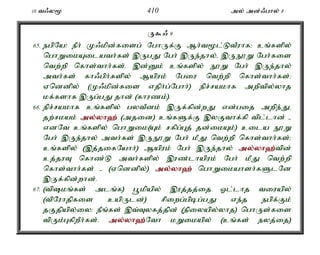 10 வஃலமூ 410 அல் அன்ஃபால் 8
ருகூஃ 9
65. நபியே! நீர் முஃமின்களைப் போருக்கு ஆர்வமூட்டுவீராக! உங்களில்
பொறுமையுடையவர்கள் இருபது பேர் இருந்தால், இருநூறு பேர்களை
வெற்றி கொள்வார்கள். இன்னும் உங்களில் நூறு பேர் இருந்தால்
அவர்கள் காஃபிர்களில் ஆயிரம் பேரை வெற்றி கொள்வார்கள்;
ஏனெனில் (முஃமின்களை எதிர்ப்போர்) நிச்சயமாக அறிவில்லாத
மக்களாக இருப்பது தான் (காரணம்).
66. நிச்சயமாக உங்களில் பலவீனம் இருக்கின்றது என்பதை அறிந்து,
தற்சமயம் அல்லாஹ் (அதனை) உங்களுக்கு இலகுவாக்கி விட்டான் -
எனவே உங்களில் பொறுமை(யும் சகிப்புத் தன்மையும்) உடைய நூறு
பேர் இருந்தால் அவர்கள் இருநூறு பேர் மீது வெற்றி கொள்வார்கள்;
உங்களில் (இத்தகையோர்) ஆயிரம் பேர் இருந்தால் அல்லாஹ்வின்
உத்தரவு கொண்டு அவர்களில் இரண்டாயிரம் பேர் மீது வெற்றி
கொள்வார்கள் - (ஏனெனில்) அல்லாஹ் பொறுமையாளர்களுடனே
இருக்கின்றான்.
67. (விஷமங்கள் அடங்க) பூமியில் இரத்தத்தை ஓட்டாத வரையில்
(விரோதிகளை உயிருடன்) சிறைப்பிடிப்பது எந்த நபிக்கும்
தகுதியில்லை; நீங்கள் இவ்வுலகத்தின் (நிலையில்லாத) பொருள்களை
விரும்புகிறீர்கள். அல்லாஹ்வோ மறுமையில் (உங்கள் நலத்தை)